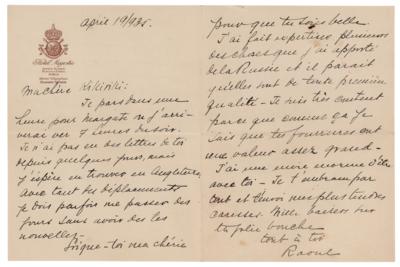 Hotel Augusta
April 19/925.
Ma chère Kikiriki:
Je pars dans une
heure pour Margate où j'arri-
verai vers 7 heures du soir.
Je n'ai pas eu des lettres de toi
depuis quelques jours, mais
j'espère en trouver en Angleterre,
avec tant des déplacements
je dois parfois me passer des
jours sans avoir des les
nouvelles.-
Soigne-toi ma chérie
pour que tu sois belle
J'ai fait expertiser plusieurs
des choses que j'ai apporté
de la Russie et il parait
qu'elles sont de toute première
qualité - Je suis très content
parce que comme ça je
sais que tes fourrures ont
une valeur assez grand-
J'ai une envie enorme d'être
avec toi - Je t'embrasse par
tout et t'envoi mes plus tendres
caresses Mille baisers sur
ta jolie bouche
tout à toi
Raoul